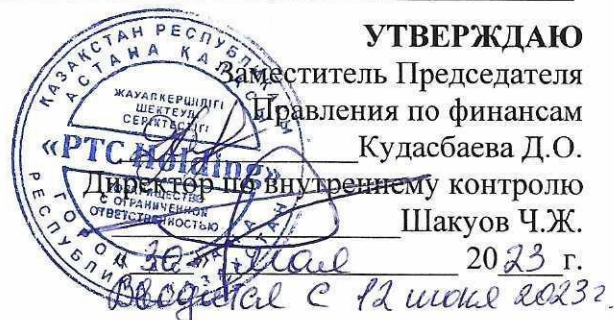 УТВЕРЖДАЮ
Заместитель Председателя
Правления по финансам
Кудасбаева Д.О.
Директор по внутреннему контролю
Шакуов Ч.Ж.
« 30 » мая 2023 г.
Вводится с 12 июня 2023г.
ҚАЗАҚСТАН РЕСПУБЛИКАСЫ
АСТАНА ҚАЛАСЫ
ЖАУАПКЕРШІЛІГІ
ШЕКТЕУЛІ
СЕРІКТЕСТІГІ
«PTC Holding»
С ОГРАНИЧЕННОЙ
ОТВЕТСТВЕННОСТЬЮ